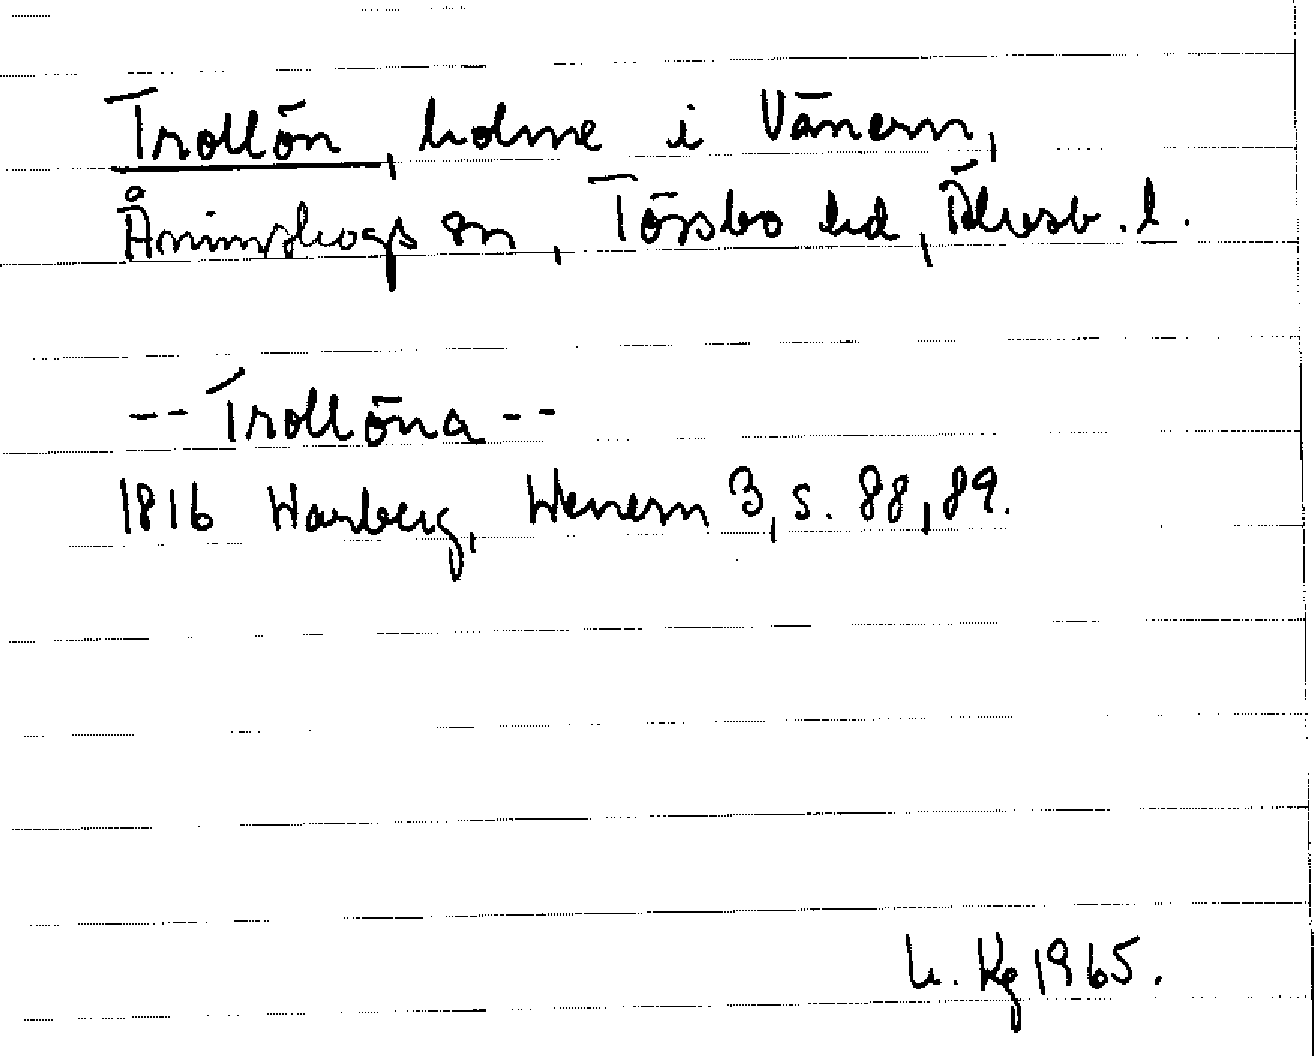 Trollön, holme i Vänern,
Ånimskogs sn, Tössbo hd, Älvsb. l.
-- Trollöna --
1816 Warberg, Wenern 3, s. 88, 89.
h. Kg 1965.